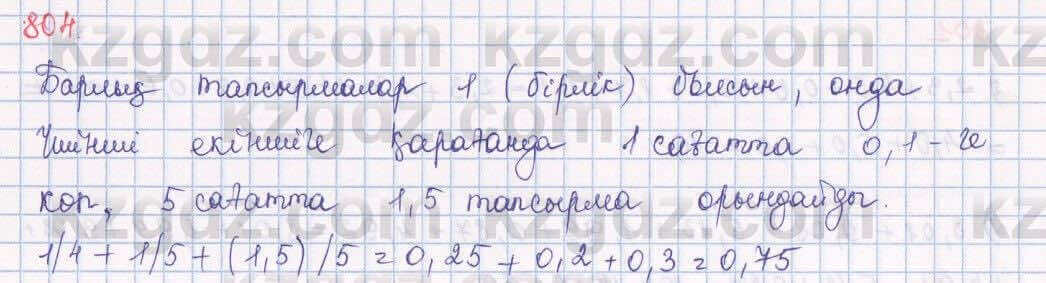 804.
Барлық тапсырмалар 1 (бірлік) болсын, онда
Үшінші екіншіге қарағанда 1 сағатта 0,1-ге
көп, 5 сағатта 1,5 тапсырма орындайды.
1/4 + 1/5 + (1,5)/5 = 0,25 + 0,2 + 0,3 = 0,75